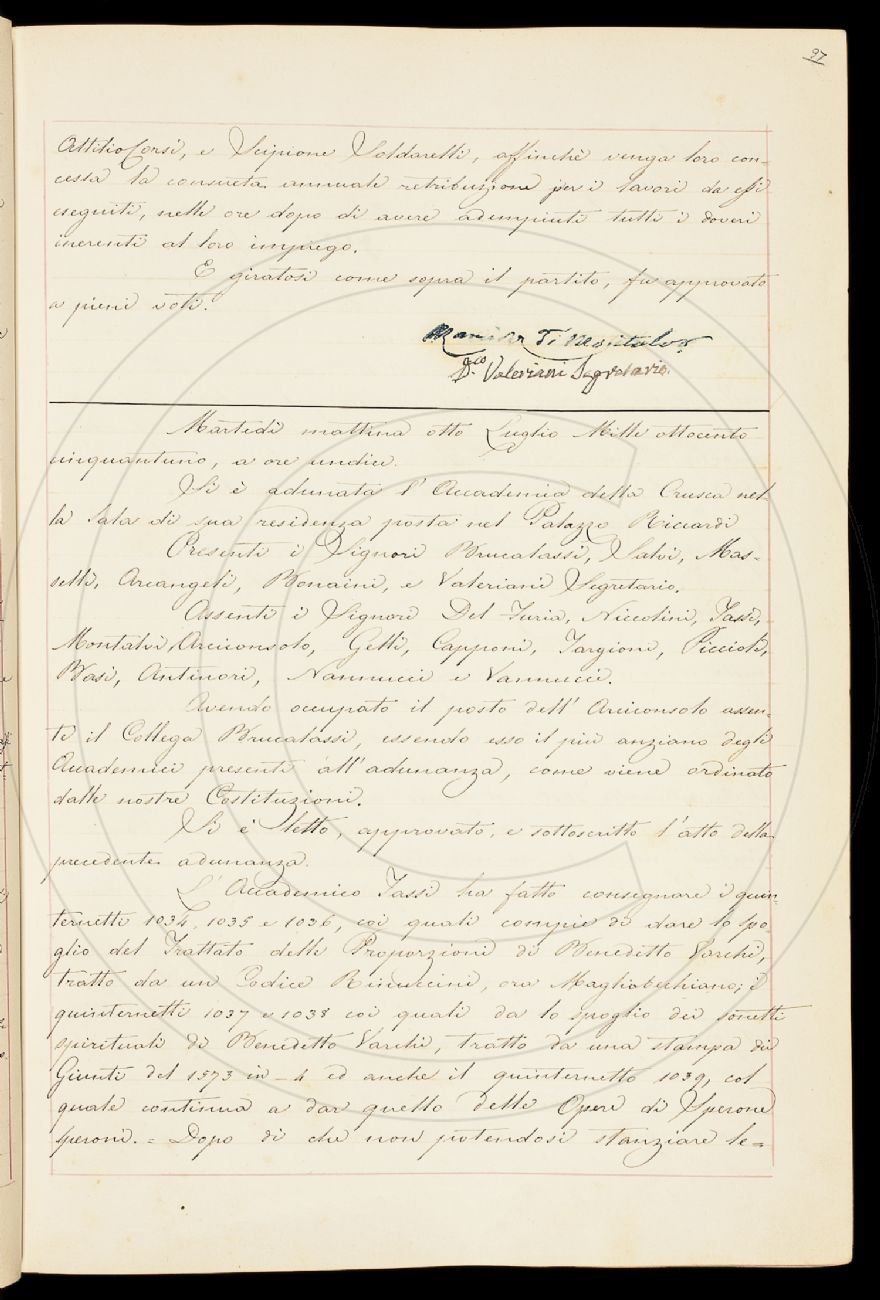 97
Attilio Corsi, e Scipione Soldarelli, affinchè venga loro con-
cessa la consueta annuale retribuzione per i lavori da essi
eseguiti, nelle ore dopo di avere adempiuti tutti i doveri
inerenti al loro impiego.
E giratosi come sopra il partito, fu approvato
a pieni voti.
Ramirez Di Montalvo
D.co Valeriani Segretario.
Martedì mattina otto Luglio Mille ottocento
cinquantuno, a ore undici.
Si è adunata l'Accademia della Crusca nel-
la Sala di sua residenza posta nel Palazzo Riccardi
Presenti i Signori Brucalassi, Salvi, Mas-
selli, Arcangeli, Bonaini, e Valeriani Segretario.
Assenti i Signori Del Furia, Niccolini, Tassi,
Montalvi Arciconsolo, Gelli, Capponi, Targioni, Piccioli,
Basi, Antinori, Nannucci e Vannucci.
Avendo occupato il posto dell'Arciconsolo assen-
te il Collega Brucalassi, essendo esso il più anziano degli
Accademici presenti all'adunanza, come viene ordinato
dalle nostre Costituzioni.
Si è letto, approvato, e sottoscritto l'atto della
precedente adunanza.
L'Accademico Tassi ha fatto consegnare i quin-
ternetti 1034, 1035 e 1036, coi quali compie di dare lo spo-
glio del Trattato delle Proporzioni di Benedetto Varchi,
tratto da un Codice Rinuccini, ora Magliabechiano; i
quinternetti 1037 e 1038 coi quali da lo spoglio dei sonetti
spirituali di Benedetto Varchi, tratto da una stampa di
Giunti del 1573 in-4 ed anche il quinternetto 1039, col
quale continua a dar quello delle Opere di Sperone
Speroni. = Dopo di che non potendosi stanziare le=